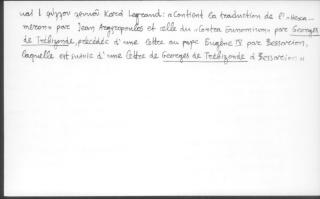 και Ι φύλλον χαρτιοῦ κατά Legrand: «Contient la traduction de l'«Hexa-
meron» par Jean Argyropoulos et celle du «Contra Eunomium» par Georges
de Trébizonde, précédés d'une lettre au pape Eugène IV par Bessarion,
laquelle est suivie d'une lettre de Georges de Trébizonde à Bessarion»